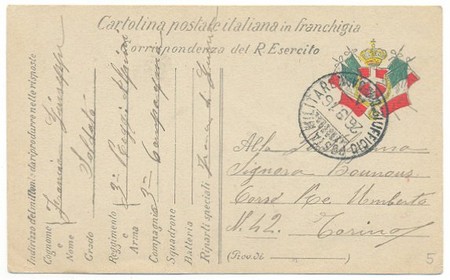 Cartolina postale italiana in franchigia
Corrispondenza del R. Esercito
Indirizzo del mittente da riprodurre nelle risposte
Cognome e Nome Giuseppe
Grado Soldato
Reggimento e Arma 3° Regg. Alpini
Compagnia 3ª Compagnia
Squadrone
Batteria
Riparti speciali Zona di Guerra
POSTA MILITARE
UFFICIO
26.9.15
Alla
Signora
Corso Re Umberto
N. 42. Torino
(Prov. di
5